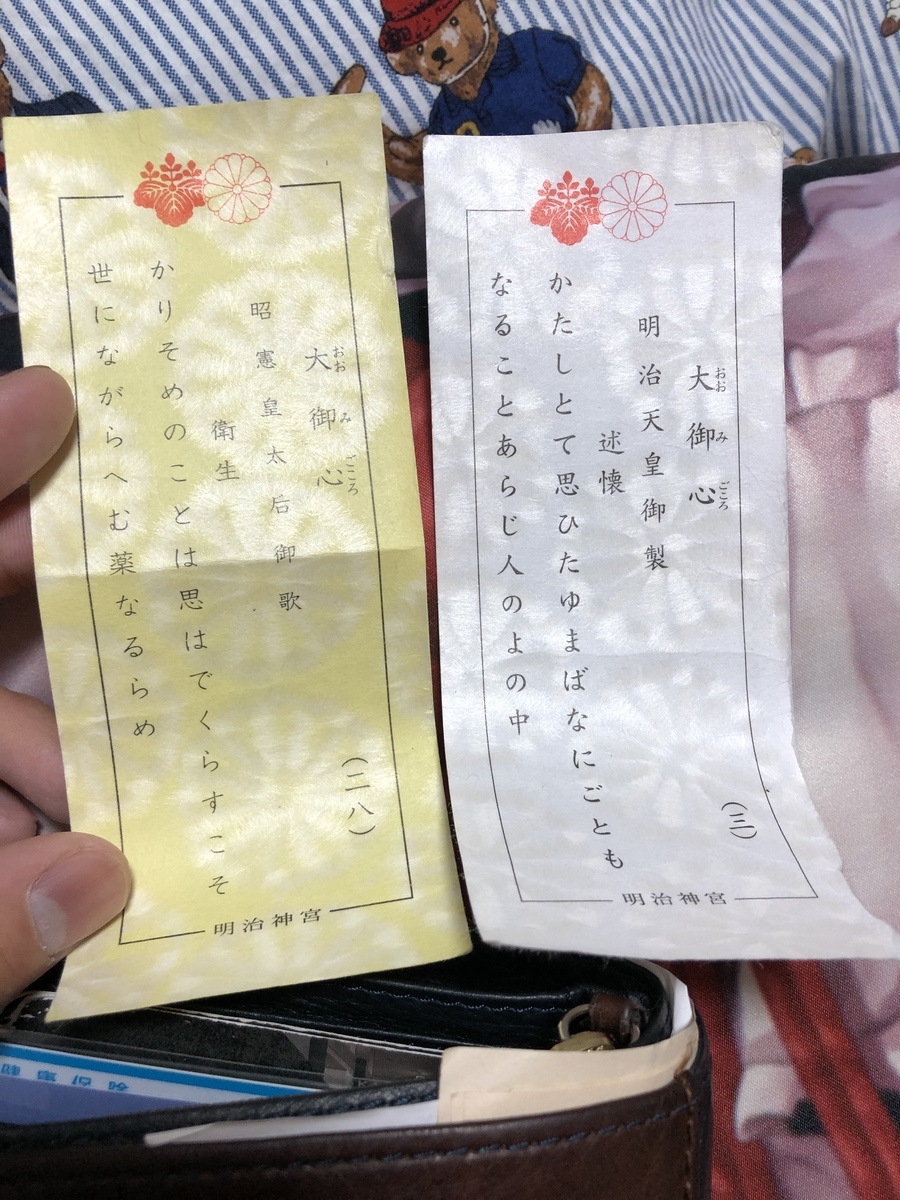 大御心
おおみごころ
昭憲皇太后御歌
衛生
かりそめのことは思はでくらすこそ
世にながらへむ薬なるらめ
(二八)
明治神宮
大御心
おおみごころ
明治天皇御製
述懐
かたしとて思ひたゆまばなにごとも
なることあらじ人のよの中
(三)
明治神宮